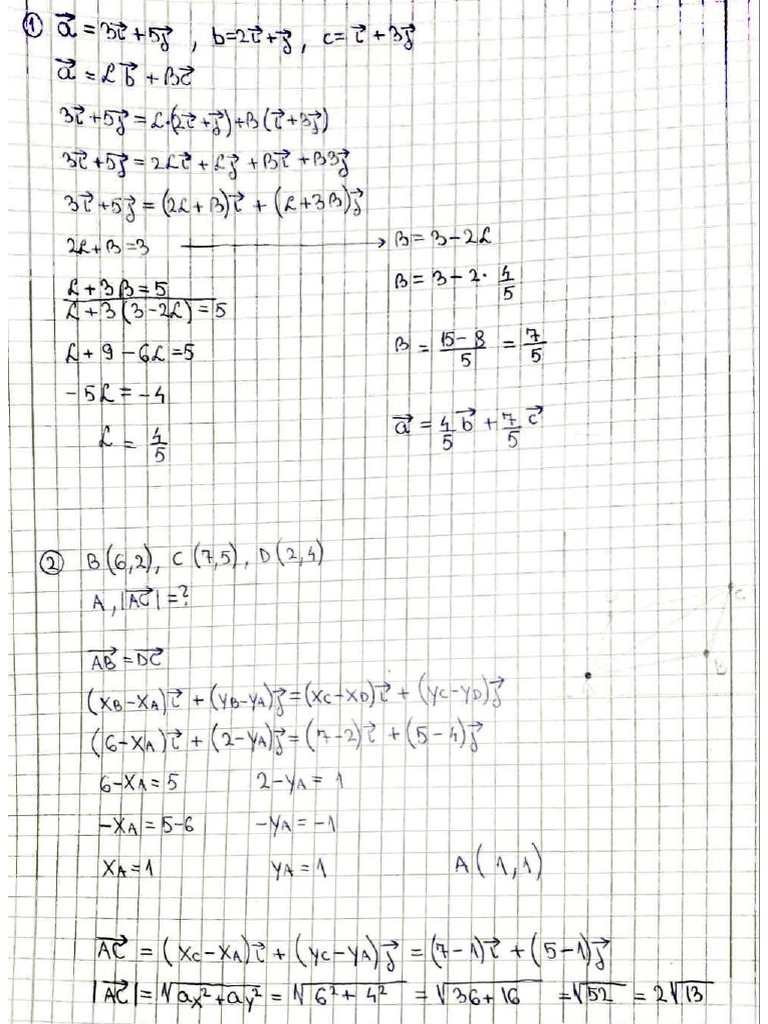 ① a⃗ = 3i⃗ + 5j⃗ , b = 2i⃗ + j⃗ , c = i⃗ + 3j⃗
a⃗ = αb⃗ + βc⃗
3i⃗ + 5j⃗ = α·(2i⃗ + j⃗) + β(i⃗ + 3j⃗)
3i⃗ + 5j⃗ = 2αi⃗ + αj⃗ + βi⃗ + β3j⃗
3i⃗ + 5j⃗ = (2α + β)i⃗ + (α + 3β)j⃗
2α + β = 3 → β = 3 - 2α
α + 3β = 5
β = 3 - 2 · 4/5
α + 3(3 - 2α) = 5
α + 9 - 6α = 5
β = (15 - 8)/5 = 7/5
-5α = -4
α = 4/5
a⃗ = 4/5 b⃗ + 7/5 c⃗
② B(6,2), C(7,5), D(2,4)
A, |AC⃗| = ?
AB⃗ = DC⃗
(xB - xA)i⃗ + (yB - yA)j⃗ = (xC - xD)i⃗ + (yC - yD)j⃗
(6 - xA)i⃗ + (2 - yA)j⃗ = (7 - 2)i⃗ + (5 - 4)j⃗
6 - xA = 5 2 - yA = 1
-xA = 5 - 6 -yA = -1
xA = 1 yA = 1 A(1,1)
AC⃗ = (xC - xA)i⃗ + (yC - yA)j⃗ = (7 - 1)i⃗ + (5 - 1)j⃗
|AC⃗| = √(ax² + ay²) = √(6² + 4²) = √(36 + 16) = √52 = 2√13